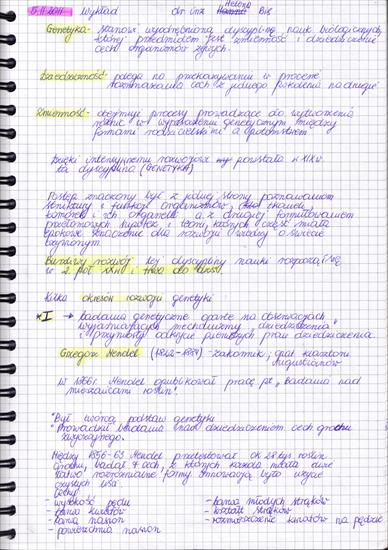 5.11.2011 Wykład dr inż. Helena Bis
Genetyka - stanowi wyodrębnioną dyscyplinę nauk biologicznych,
której przedmiotem jest zmienność i dziedziczenie
cech organizmów żywych.
Dziedziczność - polega na przekazywaniu w procesie
rozmnażania cech z jednego pokolenia na drugie
Zmienność - obejmuje procesy prowadzące do wytworzenia
różnic w wyposażeniu genetycznym między
formami rodzicielskimi a potomstwem.
Dzięki intensywnemu rozwojowi powstała
ta dyscyplina (GENETYKA)
Postęp znaczony był z jednej strony poznawaniem
struktury i funkcji organizmów, tkanek,
komórek i ich organelli a z drugiej formułowaniem
przełomowych hipotez i teorii, których część miała
epokowe znaczenie dla rozwoju wiedzy o świecie
ożywionym.
Burzliwy rozwój tej dyscypliny nauki rozpoczął się
w 2 poł. XX w i trwa do dziś.
Kilka okresów rozwoju genetyki
* I → badania genetyczne oparte na obserwacjach
wyjaśniających mechanizmy "dziedziczenia"
i przyniosły odkrycie pierwszych praw dziedziczenia.
Grzegorz Mendel (1822-1884) - zakonnik, opat klasztoru
Augustianów
W 1866 r. Mendel opublikował pracę pt. "Badania nad
mieszańcami roślin".
* Był twórcą podstaw genetyki
* Prowadził badania nad dziedziczeniem cech grochu
zwyczajnego.
Między 1856-63 Mendel przetestował ok 28 tys roślin
grochu, badał 7 cech, z których każda miała dwie
łatwo rozróżnialne formy
Cechy:
- wysokość pędu
- barwa kwiatów
- barwa nasion
- powierzchnia nasion
- barwa młodych strąków
- kształt strąków
- rozmieszczenie kwiatów na pędzie